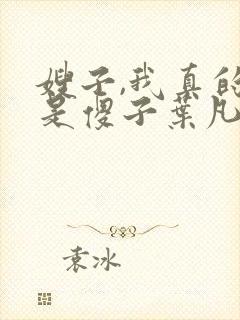 嫂子,我真的
是傻子叶凡
袁冰